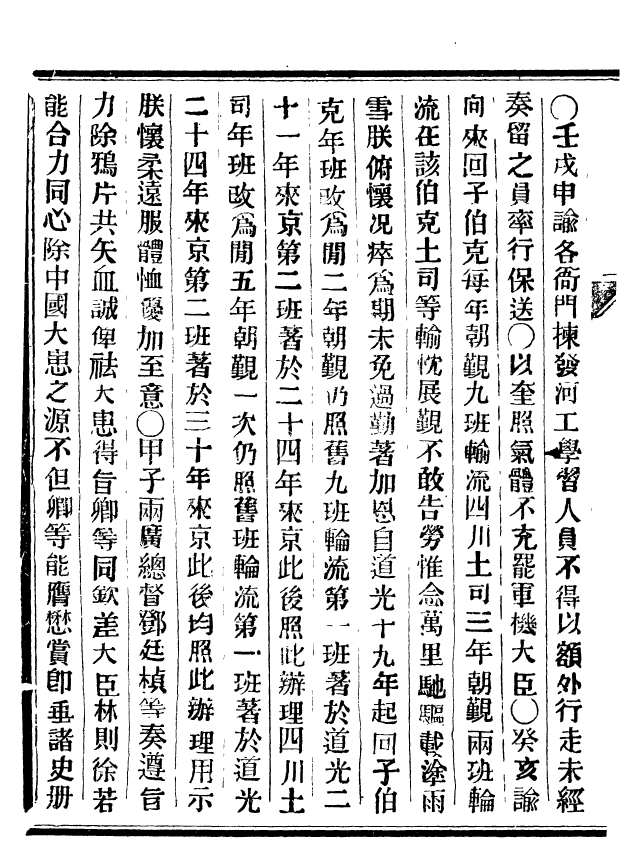 〇壬戌申諭各衙門揀發河工學習人員不得以額外行走未經
奏留之員率行保送〇以奎照氣體不充罷軍機大臣〇癸亥諭
向來回子伯克每年朝覲九班輪流四川土司三年朝覲兩班輪
流在該伯克土司等輸忱展覲不敢告勞惟念萬里馳驅載塗雨
雪朕俯懷況瘁爲期未免過勤著加恩自道光十九年起回子伯
克年班改爲閒二年朝覲仍照舊九班輪流第一班著於道光二
十一年來京第二班著於二十四年來京此後照此辦理四川土
司年班改爲閒五年朝覲一次仍照舊班輪流第一班著於道光
二十四年來京第二班著於三十年來京此後均照此辦理用示
朕懷柔遠服體恤優加至意〇甲子兩廣總督鄧廷楨等奏遵旨
力除鴉片共矢血誠俾祛大患得旨卿等同欽差大臣林則徐若
能合力同心除中國大患之源不但卿等能膺懋賞卽垂諸史册